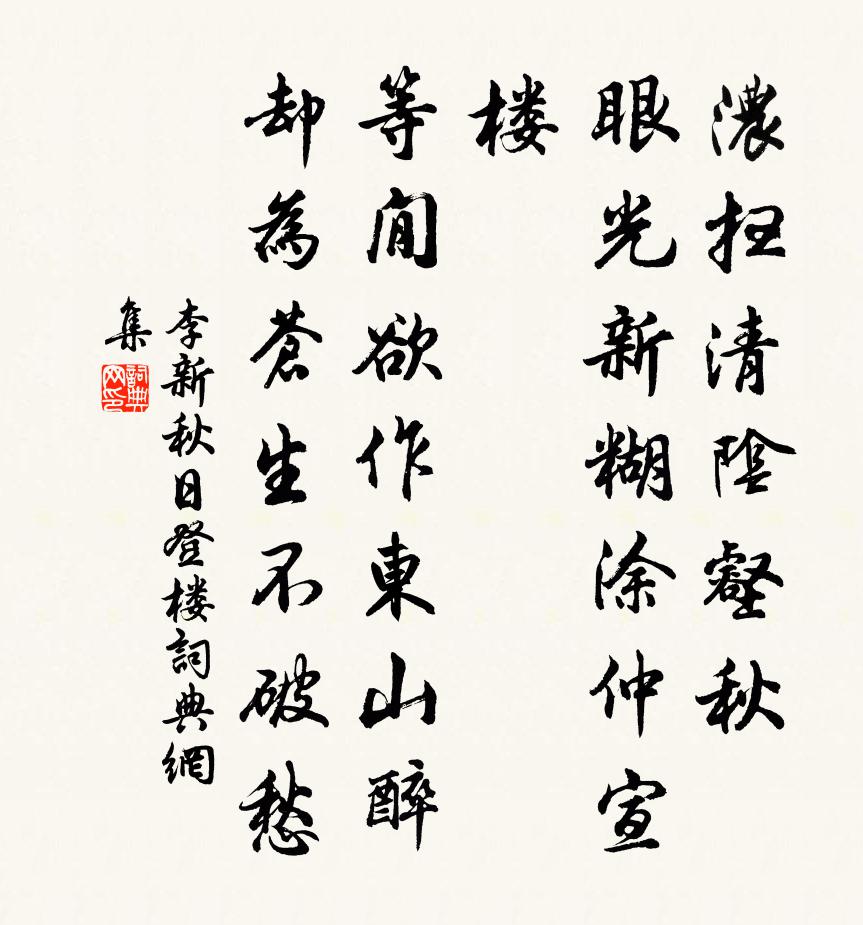 濃扫清陰壑秋
眼光新糊涂仲宣
楼
等閒欲作東山醉
却為蒼生不破愁
李新秋日登楼詞典網
集
詞典
网印